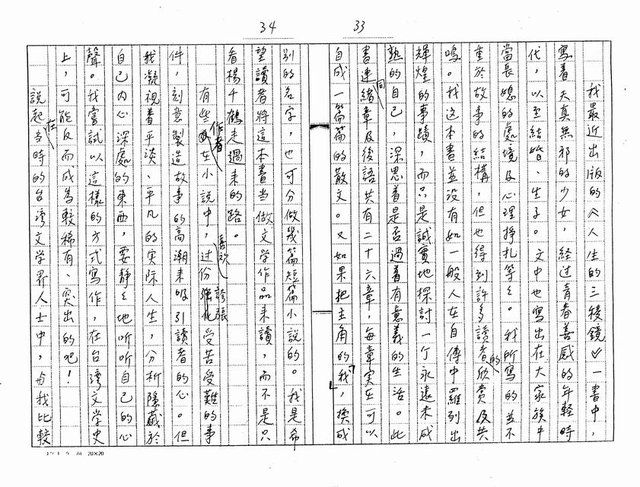 33
我最近出版的《人生的三稜鏡》一書中,
寫着天真無邪的少女,經过青春善感的年輕時
代,以至結婚、生子。文中也寫出在大家族中
當長媳的處境及心理掙扎等々。我所寫的並不
重於故事的結構,但也得到許多讀者的欣賞及共
鳴。我这本書並没有如一般人在自傳中羅列出
輝煌的事蹟,而只是誠實地探討一个永遠未成
熟的自己,深思着是否過着有意義的生活。此
書連同緒章及後語共有二十六章,每章实在可以
自成一篇篇的散文。又如果把主角的「我」,換成
34
別的名字,也可分做幾篇短篇小說的。我是希
望讀者將這本書当做文学作品来讀,而不是只
看楊千鶴走過来的路。
有些作者在小說中,过份誇張受苦受難的事
件,刻意製造故事的高潮来吸引讀者的心。但
我凝視着平淡、平凡的实际人生,分析隱藏於
自己内心深處的東西,要静々地听听自己的心
聲。我嘗試以這樣的方式寫作,在台湾文学史
上,可能反而成為較稀有、突出的吧!
說起在当時的台湾文学界人士中,与我比較
20×20